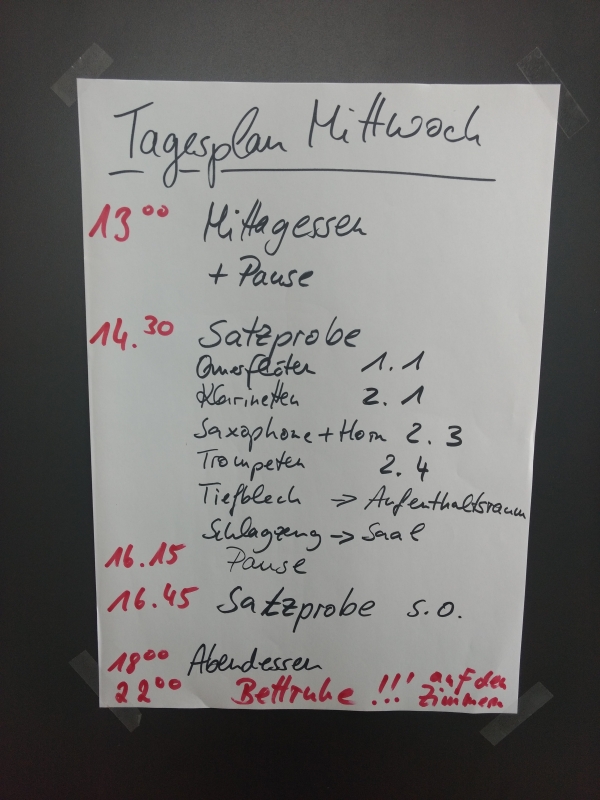 Tagesplan Mittwoch
13⁰⁰ Mittagessen
+ Pause
14.³⁰ Satzprobe
Querflöten 1.1
Klarinetten 2.1
Saxophone + Horn 2.3
Trompeten 2.4
Tiefblech → Aufenthaltsraum
Schlagzeug → Saal
16.15 Pause
16.45 Satzprobe s.o.
18⁰⁰ Abendessen
22⁰⁰ Bettruhe !!! auf den
Zimmern